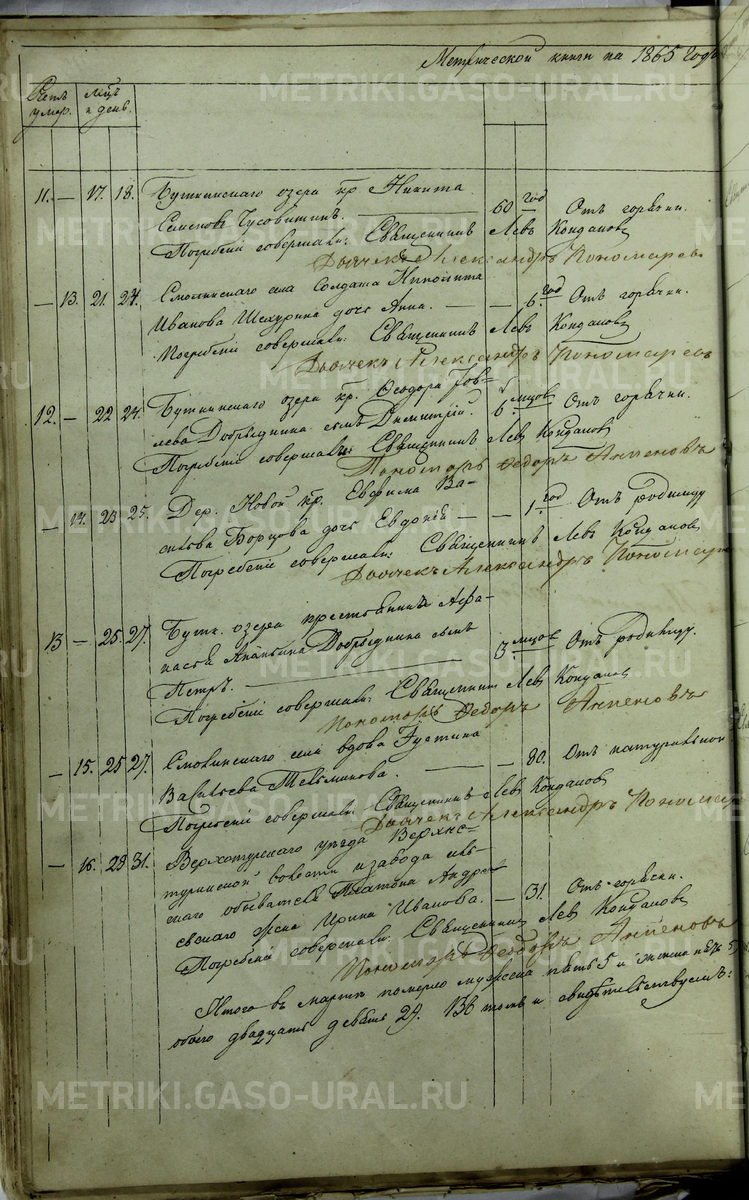 Метрической книги на 1865 годъ
Счетъ умер. мцъ и день.
11. — 17. 18. Буткинскаго озера кр. Никита
Семеновъ Чусовитинъ. — 60 год Отъ горячки.
Погребенiе совершали: Священникъ Левъ Кондаков
Дьячекъ Александръ Пономарев
— 13. 21. 24. Смолинскаго села Солдата
Иванова дочь Анна. — 6. год Отъ горячки.
Погребенiе совершали: Священникъ Левъ Кондаков
Дьячекъ Александръ Пономарев
12. — 22 24. Буткинскаго озера кр. Феодора Iов-
лева Добрынина сынъ Димитрiй. 6 мцов Отъ горячки.
Погребенiе совершали: Священникъ Лев Кондаков
Пономарь Федоръ
— 14. 23 25. Дер. Новой кр. Евфима Ва-
сильева Борцова дочь Евдокiя — 1. год Отъ родимцу
Погребенiе совершали: Священникъ Левъ Кондаков
Дьячекъ Александръ Пономарев
13 — 25. 27. Бутк. озера крестьянина Афа-
насья Добрынина сынъ
Петръ. — 3 мцов Отъ родимцу.
Погребенiе совершали: Священник Левъ Кондаков
Пономарь Федоръ
— 15. 25 27. Смолинскаго села вдова Iустина
Васильева — 80. Отъ натуральной
Погребенiе совершали: Священникъ Левъ Кондаков
Дьячекъ Александръ Пономар
— 16. 29 31. Верхотурскаго уезда Верхне-
туринской волости и завода
обывателя Платона Андре-
жена Ирина Иванова. — 31. Отъ горячки.
Погребенiе совершали: Священникъ Лев Кондаков
Пономарь Феодоръ
Итого въ марте померло мужска пять 5 и женска
обоего двадцать девять 29. Въ томъ и свидетельствуемъ:
METRIKI.GASO-URAL.RU